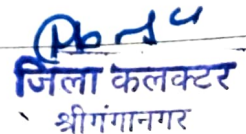 जिला कलक्टर
श्रीगंगानगर